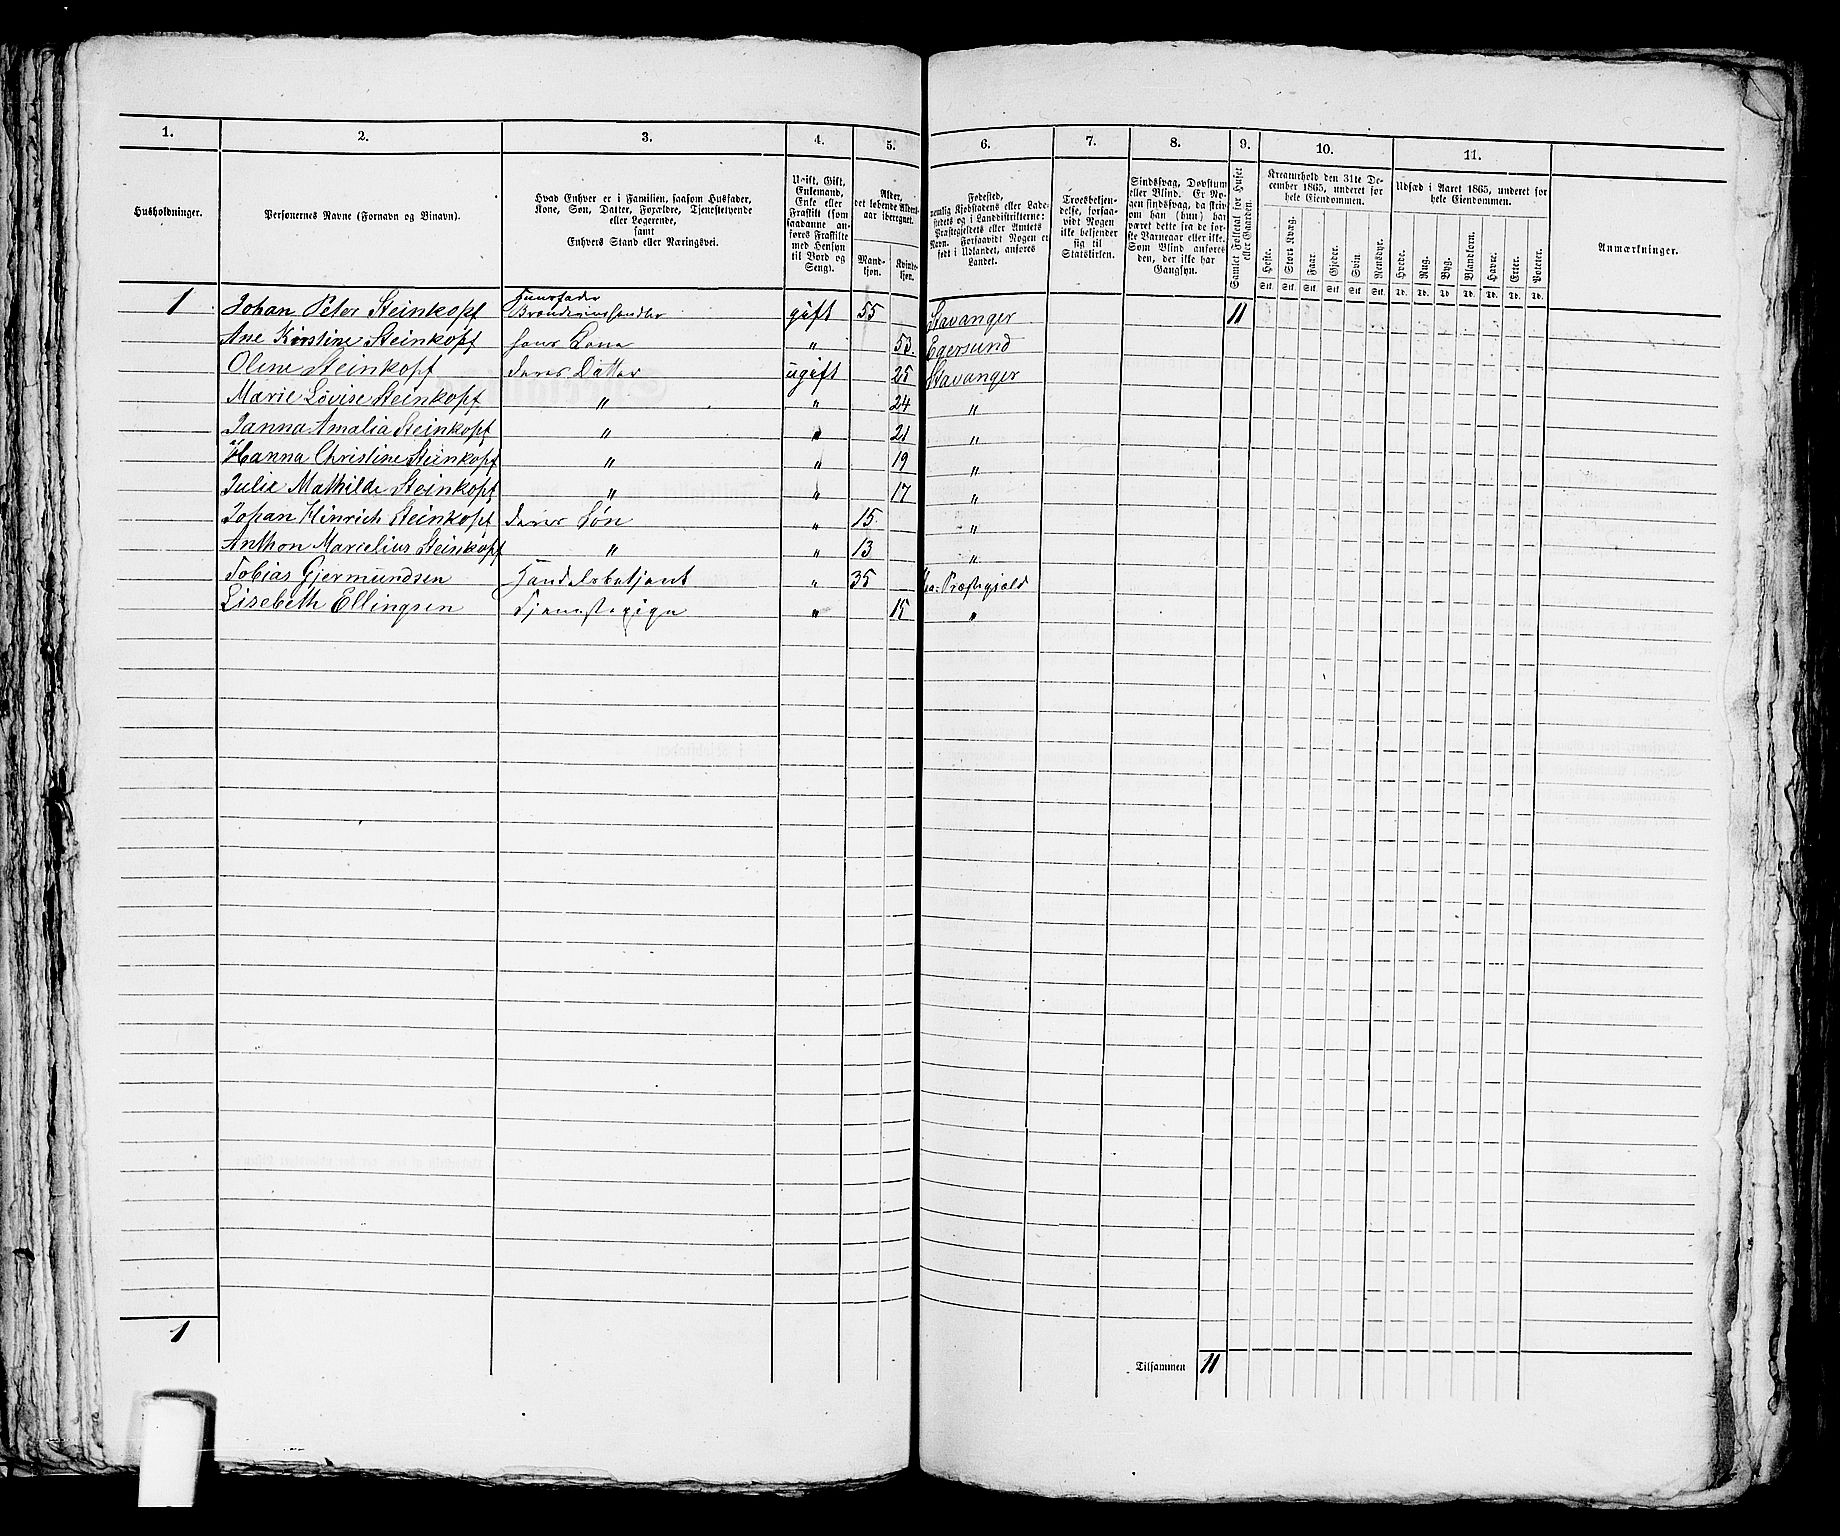 1. 2. 3. 4. 5. 6. 7. 8. 9. 10. 11.
Husholdninger.
Personernes Navne (Fornavn og Binavn).
Hvad Enhver er i Familien, saasom Husfader,
Kone, Søn, Datter, Forældre, Tjenestetyende
eller Logerende,
samt
Enhvers Stand eller Næringsvei.
Ugift, Gift,
Enkemand,
Enke eller
Fraskilt (som
saadanne an-
føres Fraskilte
med Hensyn
til Bord og
Seng).
Alder,
det løbende Alders-
aar iberegnet.
Mand-
kjøn.
Kvinde-
kjøn.
Fødested,
nemlig Kjøbstadens eller Lade-
stedets og i Landdistrikterne:
Præstegjeldets eller Amtets
Navn. Forsaavidt Nogen er
født i Udlandet, anføres
Landet.
Troesbekjen-
delse, forsaa-
vidt Nogen
ikke bekjender
sig til
Statskirken.
Sindssvag, Døvstum
eller Blind. Er No-
gen sindssvag, da skriv
om han (hun) har
været dette fra de før-
ste Barneaar eller ikke.
Som Blind anføres
den, der ikke har
Gangsyn.
Samlet Folketal for Huset
eller Gaarden.
Kreaturhold den 31te De-
cember 1865, underet for
hele Eiendommen.
Heste. Stort Kvæg. Faar. Gjeder. Svin. Rensdyr.
Stk. Stk. Stk. Stk. Stk. Stk.
Udsæd i Aaret 1865, underet for
hele Eiendommen.
Hvede. Rug. Byg. Blandkorn. Havre. Erter. Poteter.
Td. Td. Td. Td. Td. Td. Td.
Anmærkninger.
1 Johan Peter Steinkopf Huusfader Brændeviinshandler gift 55 Stavanger 11
Ane Kirstine Steinkopf hans Kone " 53. Egersund
Oline Steinkopf deres Datter ugift 25 Stavanger
Marie Lovise Steinkopf " " 24 "
Janna Amalia Steinkopf " " 21 "
Hanna Christine Steinkopf " " 19 "
Julie Mathilde Steinkopf " " 17 "
Johan Hinrich Steinkopf deres Søn " 15 "
Anthon Marcelius Steinkopf " " 13 "
Tobias Gjermundsen Handelsbetjent " 35 Præstegjæld
Lisebeth Ellingsen Tjenestepige " 15 "
1
Tilsammen 11